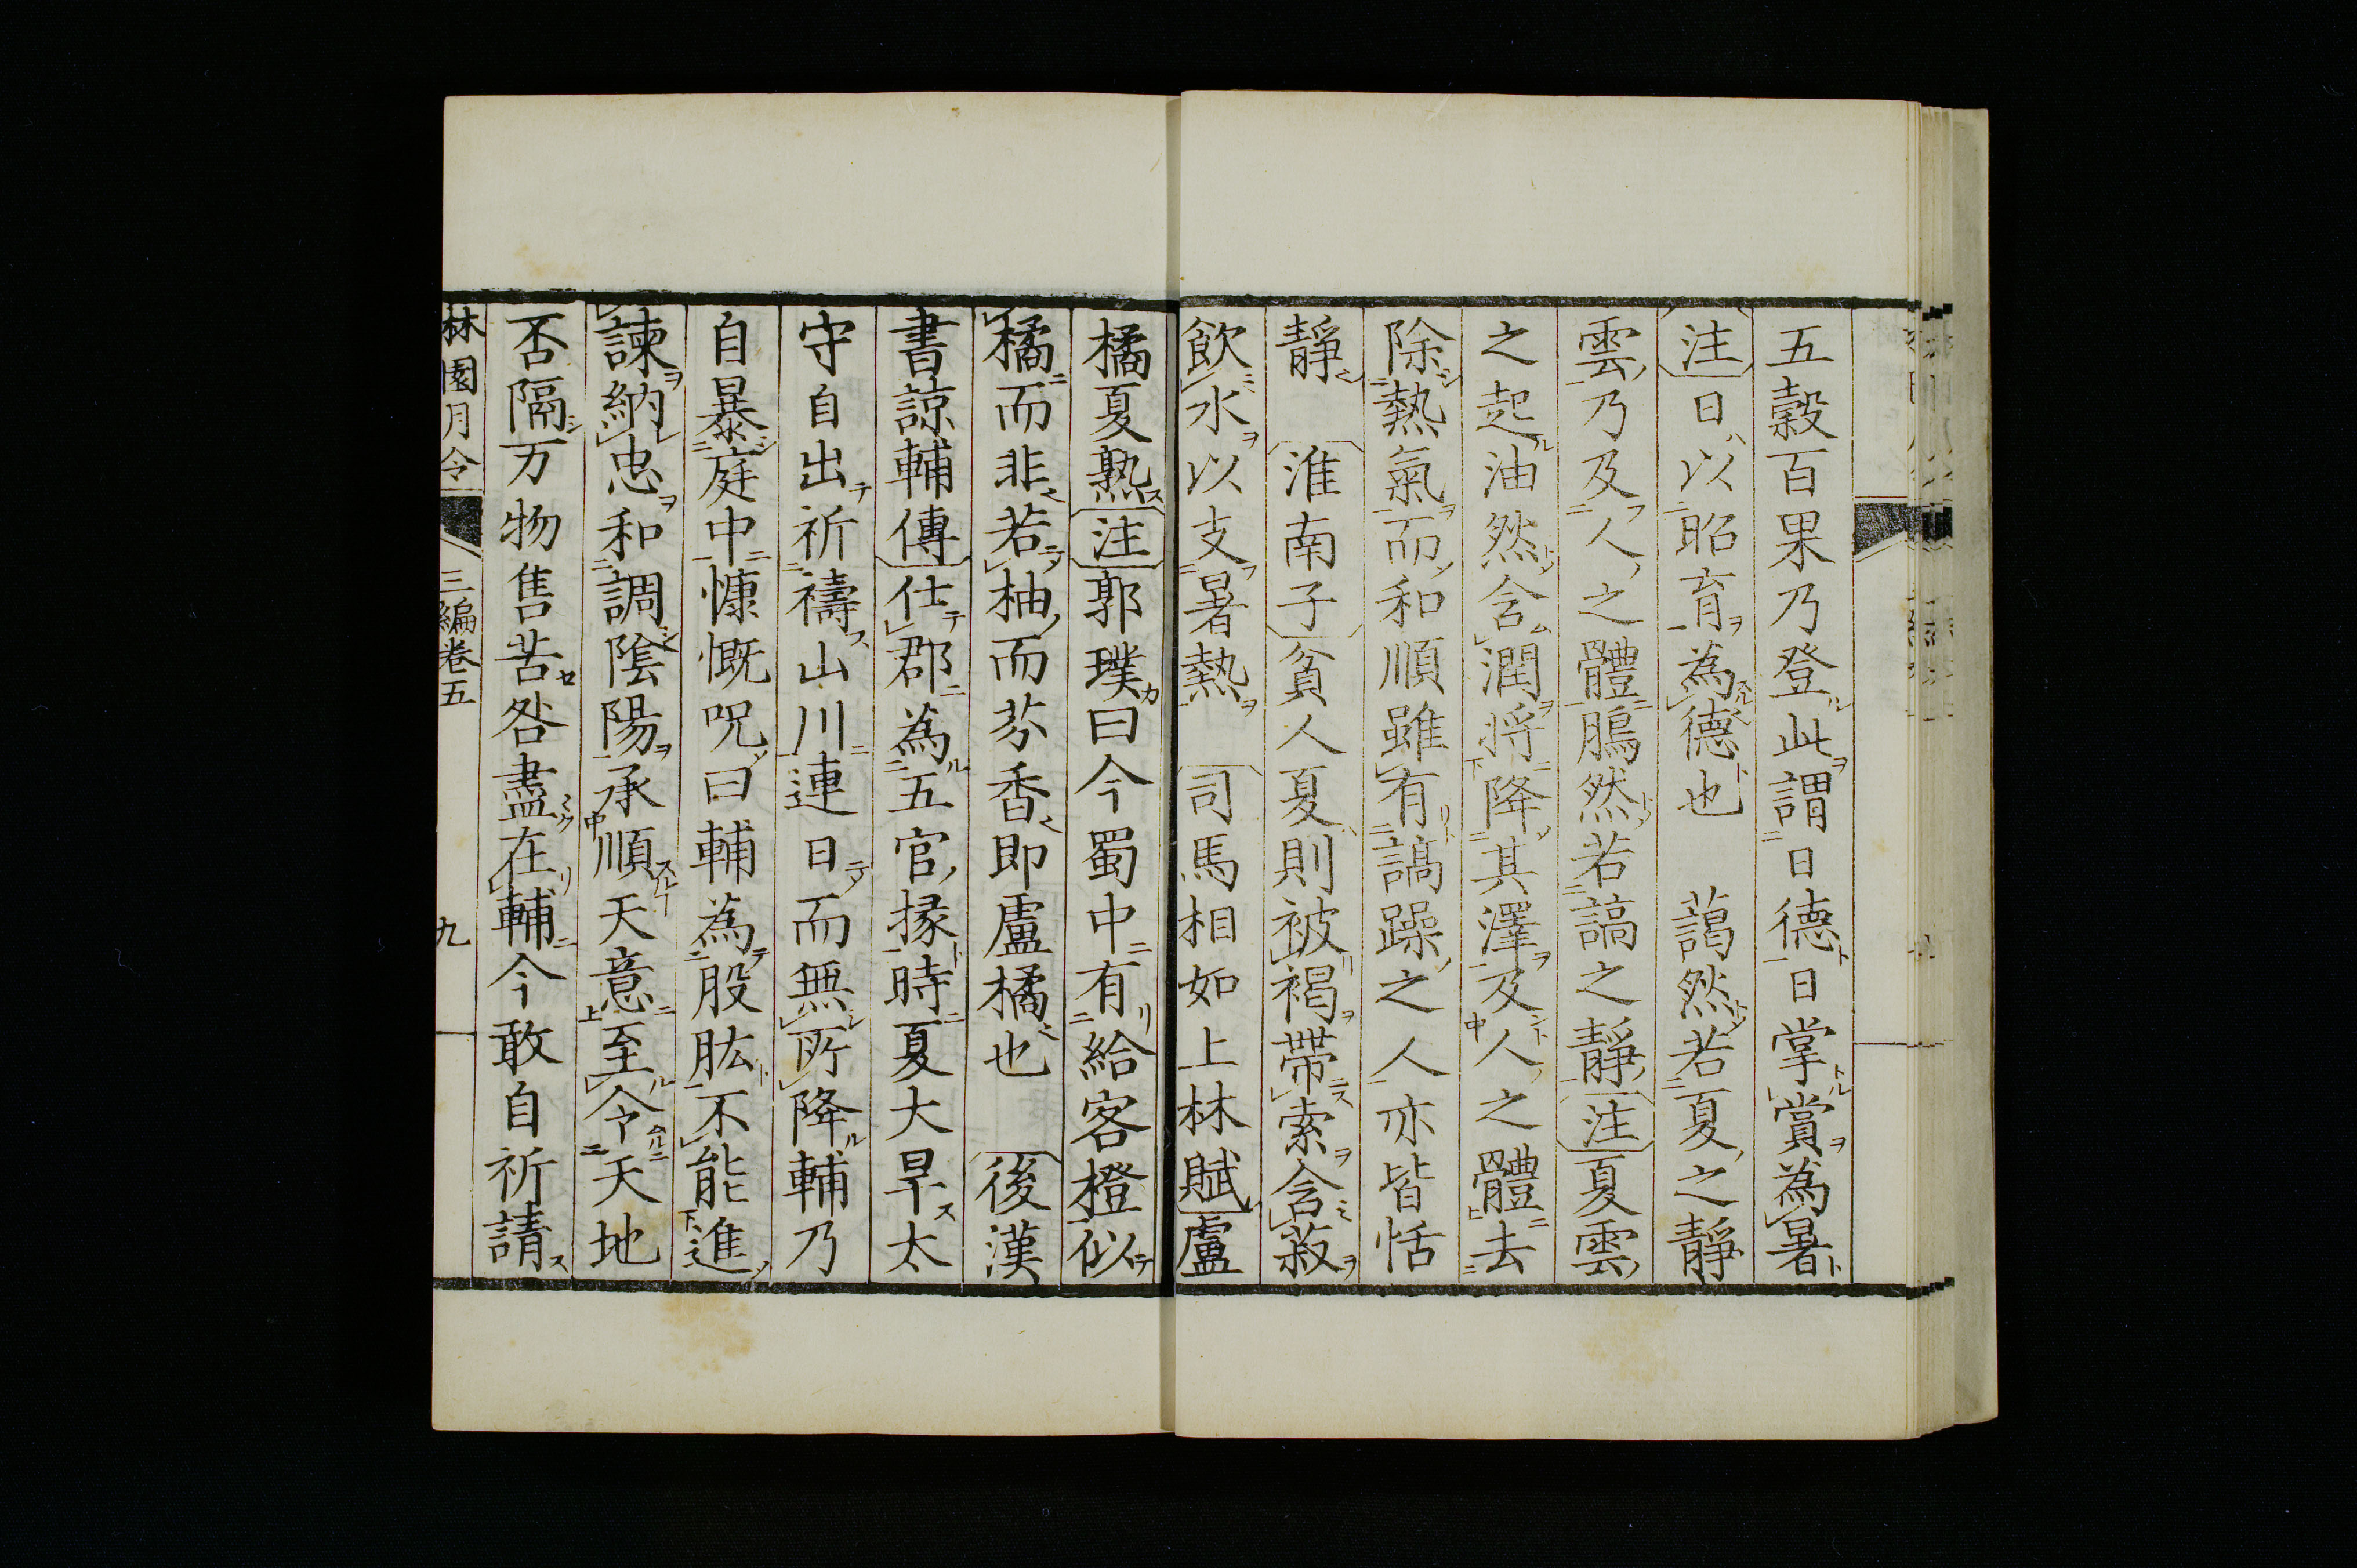 五穀百果乃登此謂日德日掌賞為暑
注日以昭育為德也　藹然若夏之靜
雲乃及人之體鵰然若謞之靜注夏雲
之起油然含潤将降其澤及人之體去
除熱氣而和順雖有謞躁之人亦皆恬
靜　淮南子貧人夏則被褐帶索含菽
飲水以支暑熱　司馬相如上林賦盧
橘夏熟注郭璞曰今蜀中有給客橙似
橘而非若柚而芬香即盧橘也　後漢
書諒輔傳仕郡為五官掾時夏大旱太
守自出祈禱山川連日而無所降輔乃
自暴庭中慷慨呪曰輔為股肱不能進
諫納忠和調陰陽承順天意至令天地
否隔万物售苦咎盡在輔今敢自祈請
林園月令　三編卷五　九